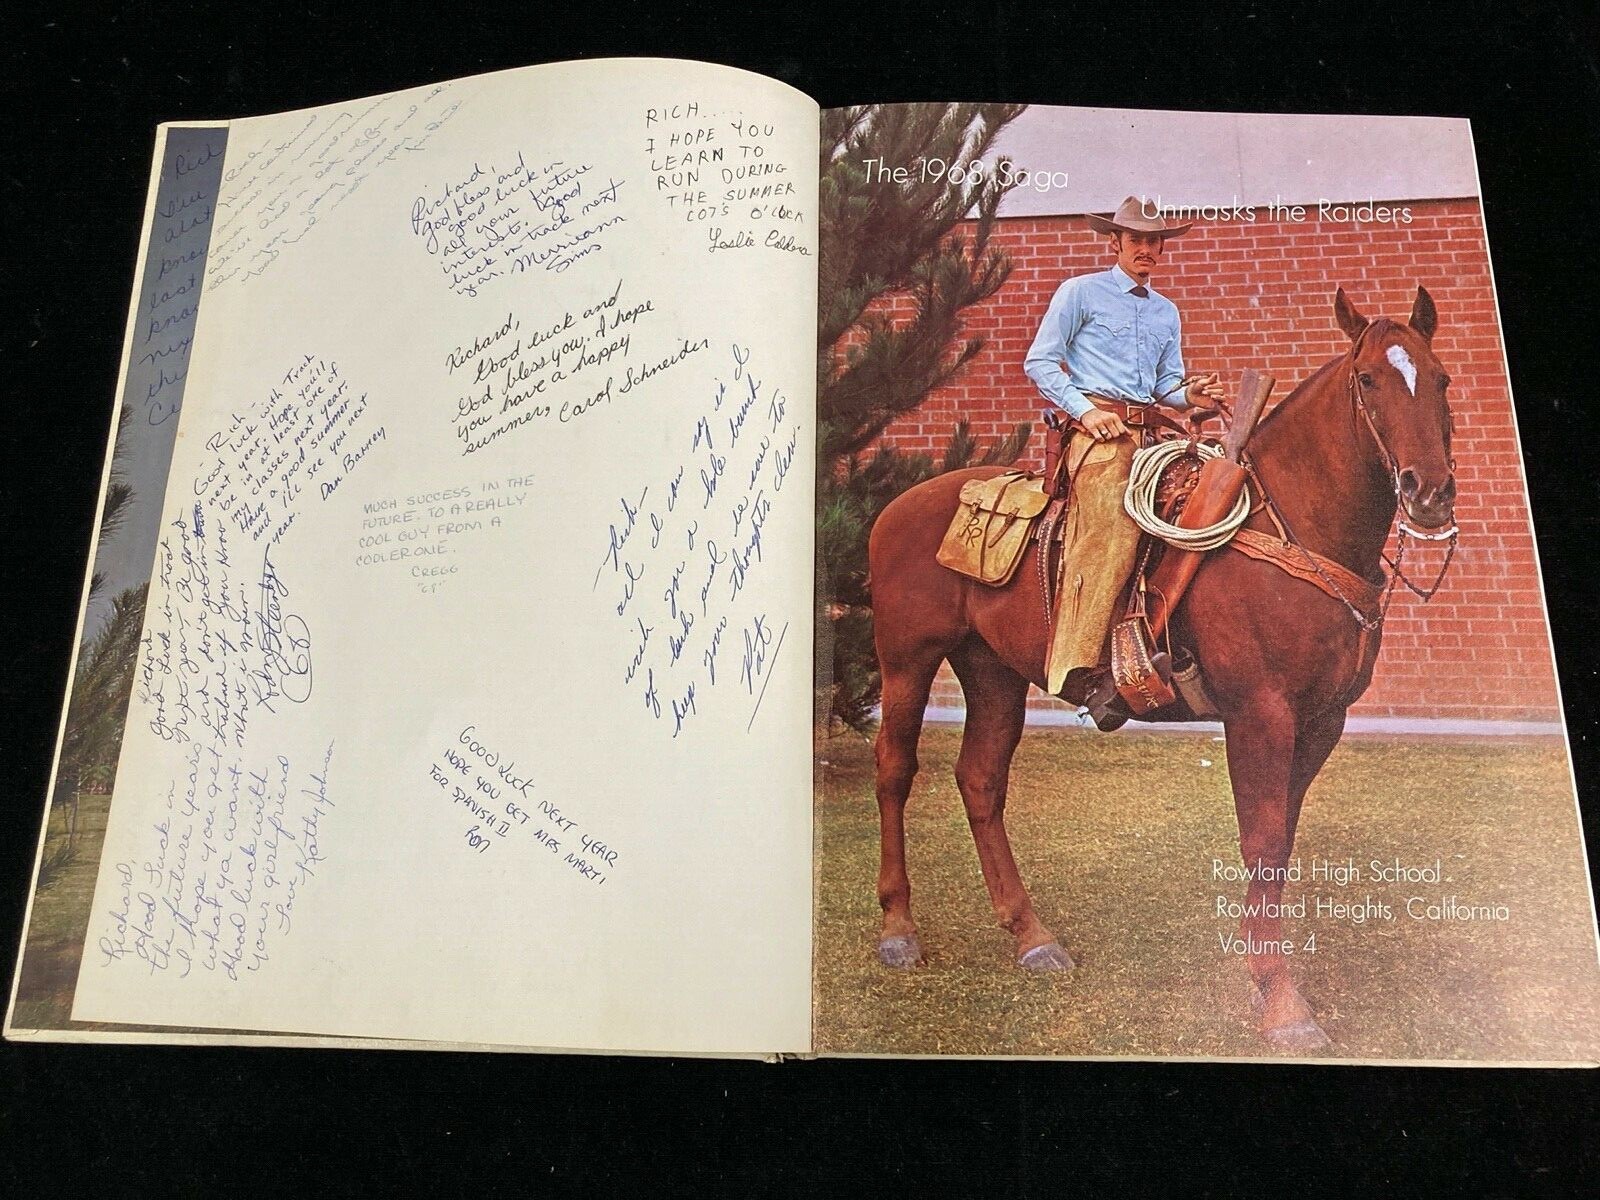 Rich
I'm
alot
know
last
know
next
the
RICH.....
I HOPE YOU
LEARN TO
RUN DURING
THE SUMMER
LOTS O'LUCK
Leslie
Richard,
God bless and
good luck in
all your future
interests. Good
luck in track next
year. Merrieann
Sims
Richard,
Good luck and
God bless you. I hope
you have a happy
summer, Carol Schneider
Rich -
Good luck with Track
next year. Hope you'll
be in at least one of
my classes next year.
Have a good summer
and I'll see you next
year. Dan Barney
MUCH SUCCESS IN THE
FUTURE. TO A REALLY
COOL GUY FROM A
COOLER ONE.
CREGG
"CP"
Rich
all I can say is I
wish you a hole bunch
of luck and be sure to
keep your thoughts clean.
Pat
Richard
Good Luck in
next year. Be good
and don't get in
trouble if you
Richard,
Good Luck in
the future years
I hope you get
what ya want.
Good luck with
your girlfriend
Love, Kathy Johnson
GOOD LUCK NEXT YEAR
HOPE YOU GET MRS MARTI
FOR SPANISH II
RON
The 1968 Saga
Unmasks the Raiders
RR
Rowland High School
Rowland Heights, California
Volume 4